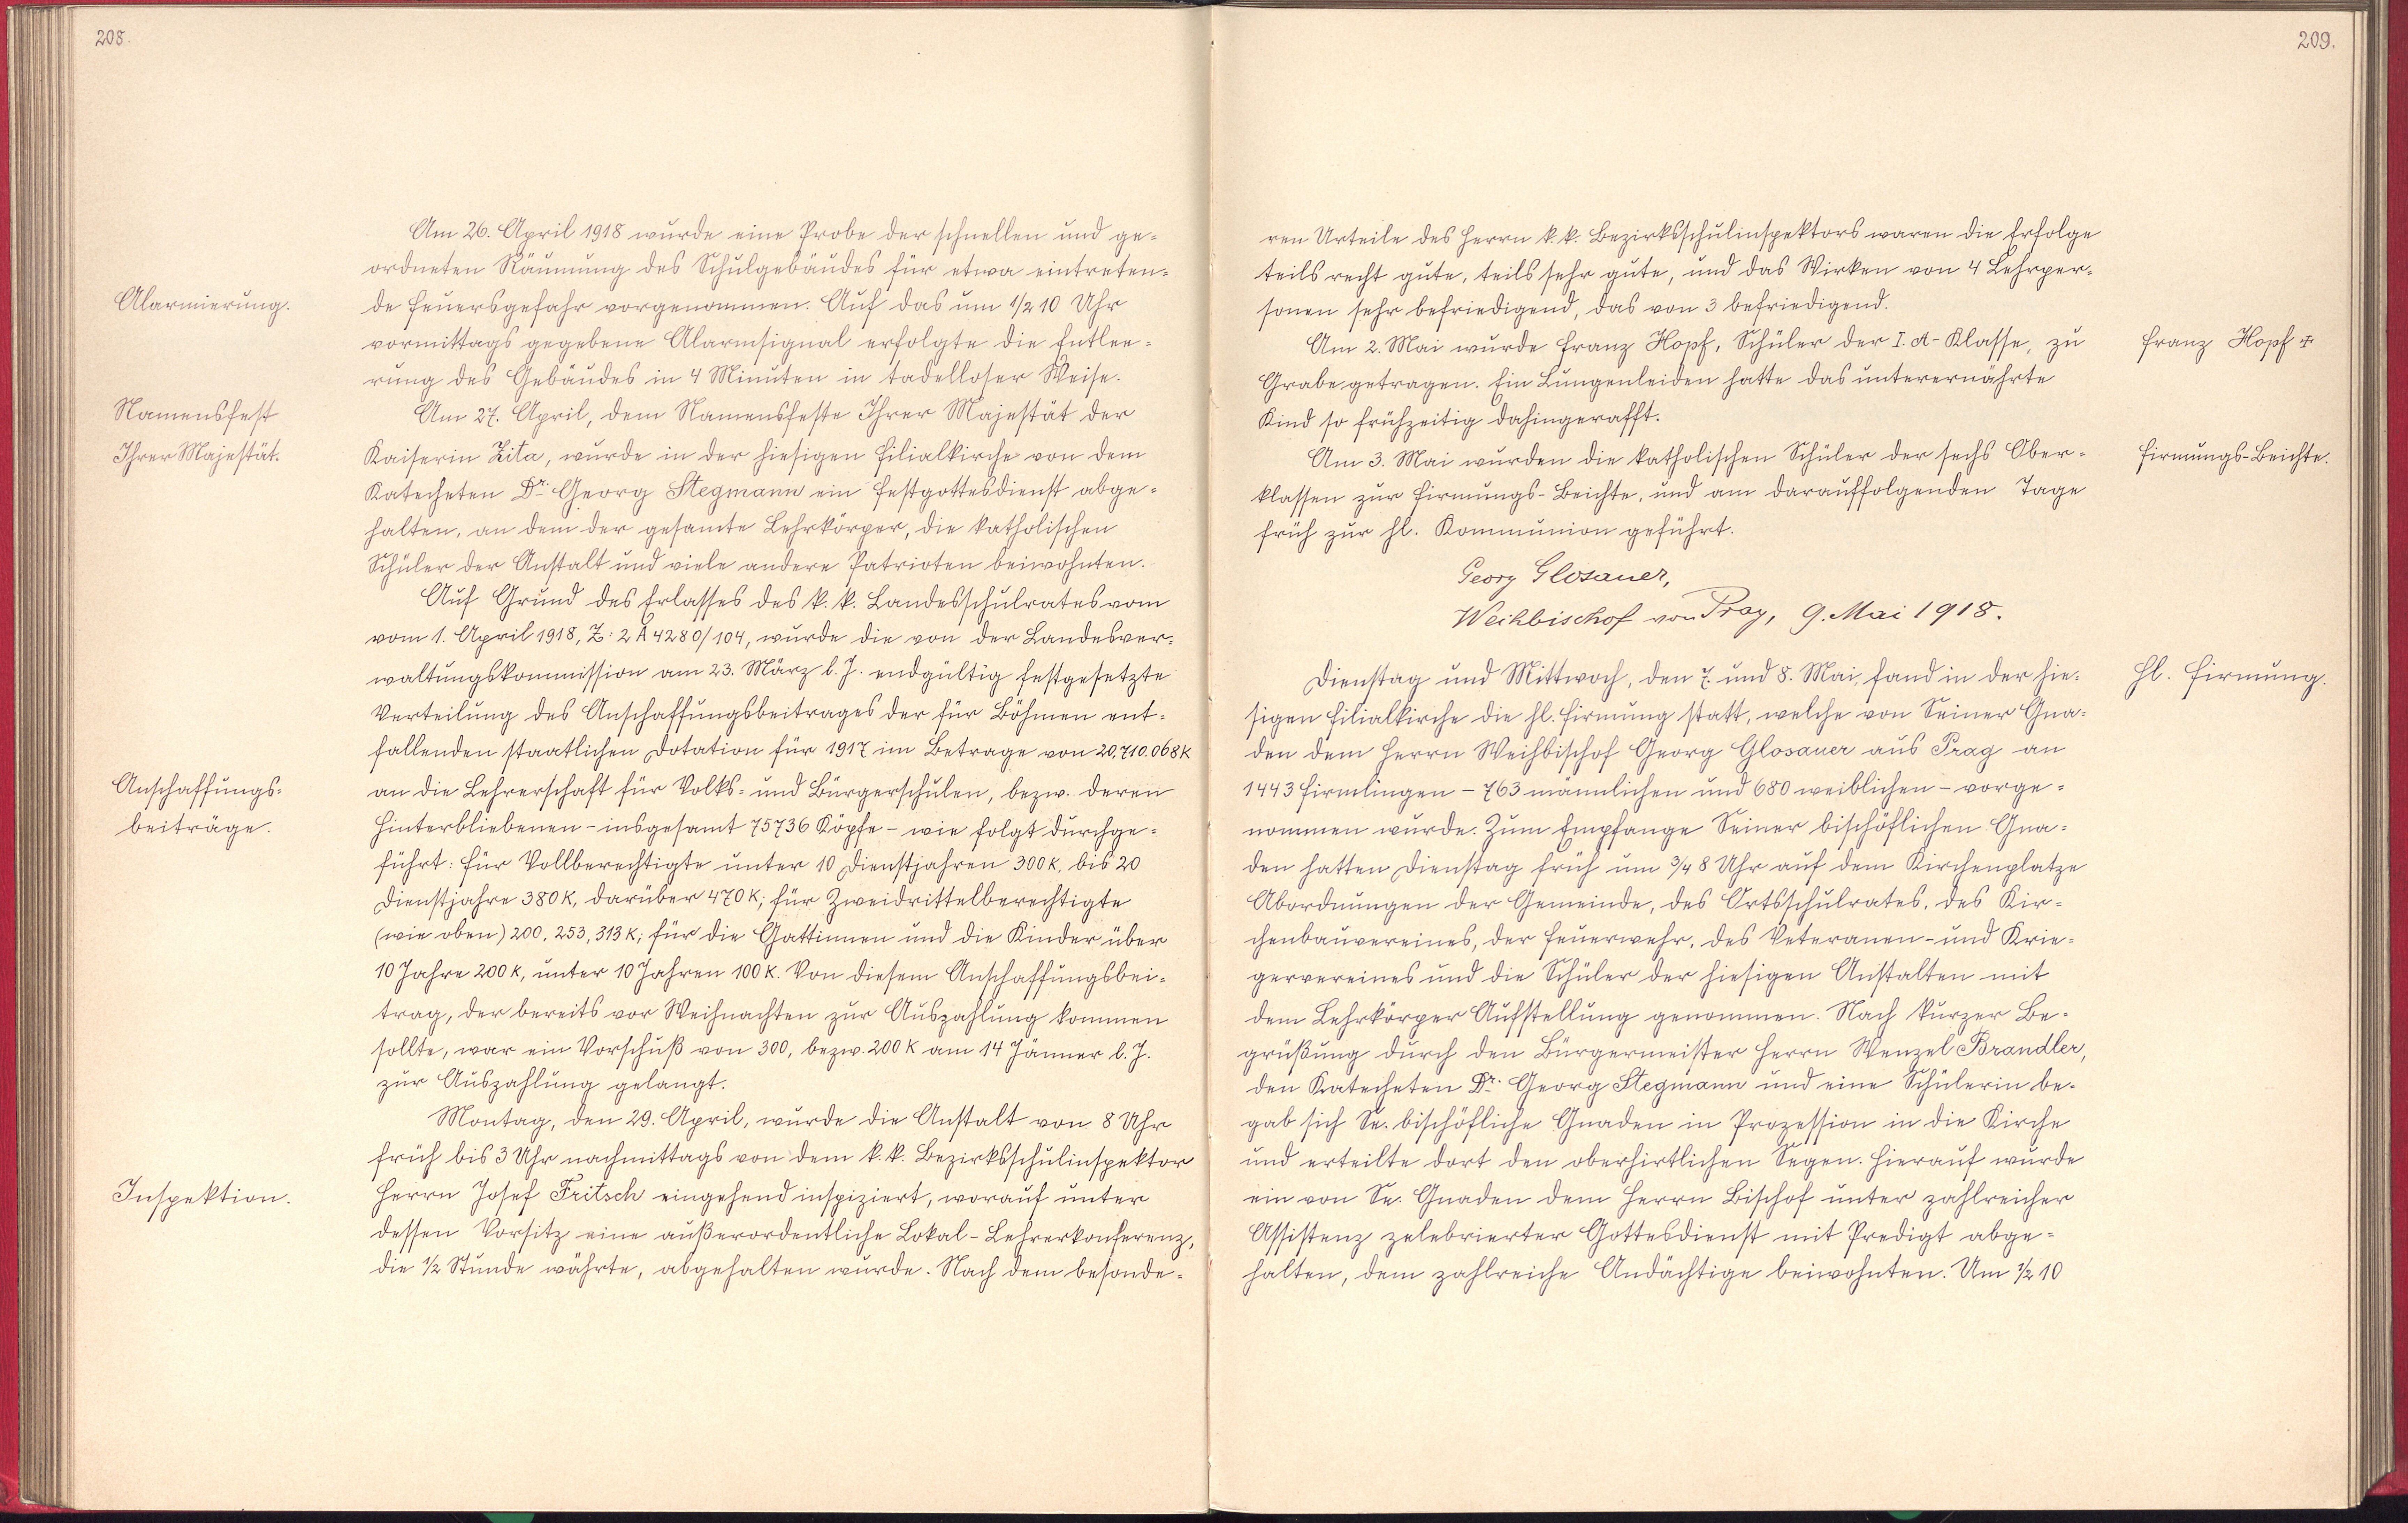 208.
Am 26. April 1918 wurde eine Probe der schnellen und ge-
ordneten Räumung des Schulgebäudes für etwa eintreten-
Alarmierung.
de Feuersgefahr vorgenommen. Auf das um 1/2 10 Uhr
vormittags gegebene Alarmsignal erfolgte die Entlee-
rung des Gebäudes in 4 Minuten in tadelloser Weise.
Namensfest
Ihrer Majestät.
Am 27. April, dem Namensfeste Ihrer Majestät der
Kaiserin Zita, wurde in der hiesigen Filialkirche von dem
Katecheten Dr. Georg Stegmann ein Festgottesdienst abge-
halten, an dem der gesamte Lehrkörper, die katholischen
Schüler der Anstalt und viele andere Patrioten beiwohnten.
Auf Grund des Erlasses des k. k. Landesschulrates vom
vom 1. April 1918, Z: 2 A 4280/104, wurde die von der Landesver-
waltungskommission am 23. März l. J. endgültig festgesetzte
Verteilung des Anschaffungsbeitrages der für Böhmen ent-
fallenden staatlichen Dotation für 1917 im Betrage von 20,710.068 K
Anschaffungs-
beiträge.
an die Lehrerschaft für Volks- und Bürgerschulen, bezw. deren
Hinterbliebenen - insgesamt 75736 Köpfe - wie folgt durchge-
führt: für Vollberechtigte unter 10 Dienstjahren 300 K, bis 20
Dienstjahre 380 K, darüber 470 K; für Zweidrittelberechtigte
(wie oben) 200, 253, 313 K; für die Gattinnen und die Kinder über
10 Jahre 200 K, unter 10 Jahren 100 K. Von diesem Anschaffungsbei-
trag, der bereits vor Weihnachten zur Auszahlung kommen
sollte, war ein Vorschuß von 300, bezw. 200 K am 14 Jänner l. J.
zur Auszahlung gelangt.
Montag, den 29. April, wurde die Anstalt von 8 Uhr
früh bis 3 Uhr nachmittags von dem k. k. Bezirksschulinspektor
Inspektion.
Herrn Josef Fritsch eingehend inspiziert, worauf unter
dessen Vorsitz eine außerordentliche Lokal-Lehrerkonferenz,
die 1/2 Stunde währte, abgehalten wurde. Nach dem besonde-
209.
ren Urteile des Herrn k. k. Bezirksschulinspektors waren die Erfolge
teils recht gute, teils sehr gute, und das Wirken von 4 Lehrper-
sonen sehr befriedigend, das von 3 befriedigend.
Am 2. Mai wurde Franz Hopf, Schüler der I. A-Klasse, zu
Franz Hopf +
Grabe getragen. Ein Lungenleiden hatte das unterernährte
Kind so frühzeitig dahingerafft.
Am 3. Mai wurden die katholischen Schüler der sechs Ober-
Firmungs-Beichte.
klassen zur Firmungs-Beichte, und am darauffolgenden Tage
früh zur hl. Kommunion geführt.
Georg Glosauer,
Weihbischof von Prag, 9. Mai 1918.
Dienstag und Mittwoch, den 7. und 8. Mai, fand in der hie-
hl. Firmung.
sigen Filialkirche die hl. Firmung statt, welche von Seiner Gna-
den dem Herrn Weihbischof Georg Glosauer aus Prag an
1443 Firmlingen - 763 männlichen und 680 weiblichen - vorge-
nommen wurde. Zum Empfange Seiner bischöflichen Gna-
den hatten Dienstag früh um 3/4 8 Uhr auf dem Kirchenplatze
Abordnungen der Gemeinde, des Ortsschulrates, des Kir-
chenbauvereines, der Feuerwehr, des Veteranen- und Krie-
gervereines und die Schüler der hiesigen Anstalten mit
dem Lehrkörper Aufstellung genommen. Nach kurzer Be-
grüßung durch den Bürgermeister Herrn Wenzel Brandler,
den Katecheten Dr. Georg Stegmann und eine Schülerin be-
gab sich Se. bischöfliche Gnaden in Prozession in die Kirche
und erteilte dort den oberhirtlichen Segen. Hierauf wurde
ein von Sr. Gnaden dem Herrn Bischof unter zahlreicher
Assistenz zelebrierter Gottesdienst mit Predigt abge-
halten, dem zahlreiche Andächtige beiwohnten. Um 1/2 10